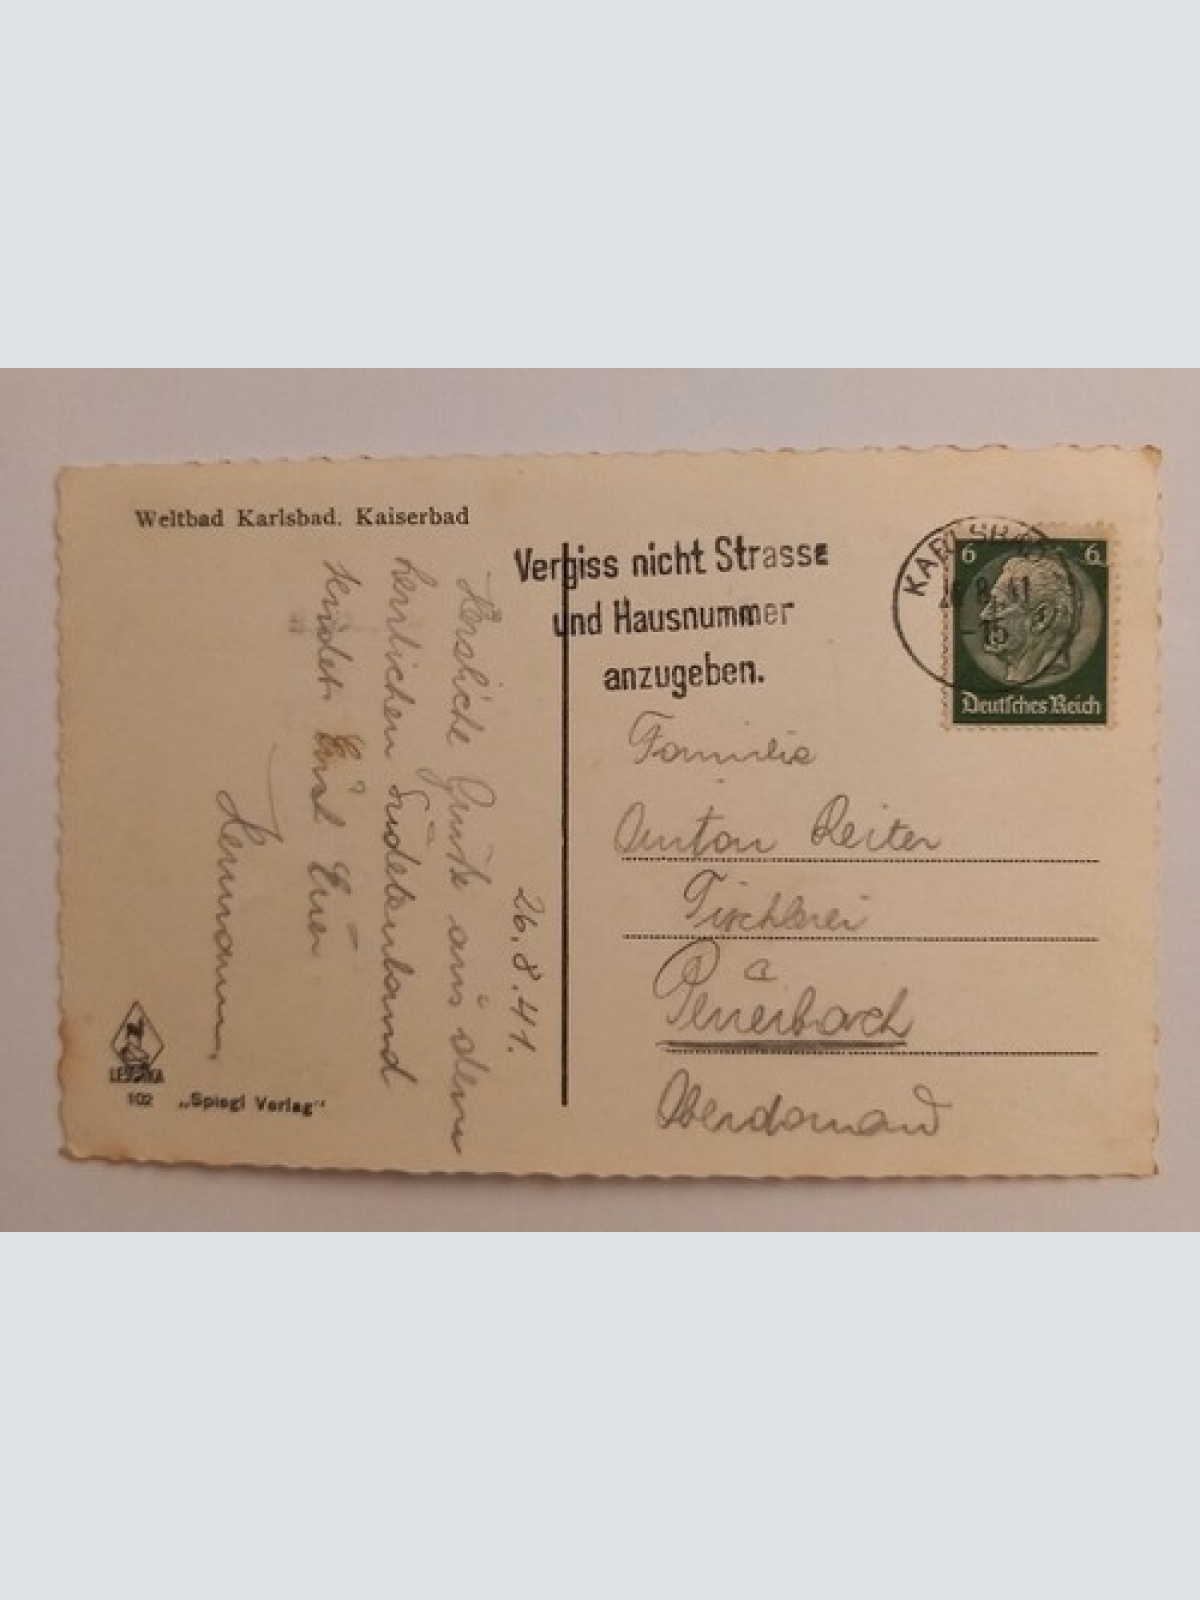 Weltbad Karlsbad. Kaiserbad
Vergiss nicht Strasse
und Hausnummer
anzugeben.
KARLSBAD
8. 41
-15
6 6
Deutsches Reich
26.8.41.
Herzliche Grüße aus dem
herrlichen Sudetenland
sendet Euch Euer
Hermann.
Familie
Anton Reiter
Tischlerei
Peuerbach
Oberdonau
LESCHKA
102
„Spiegl Verlag"